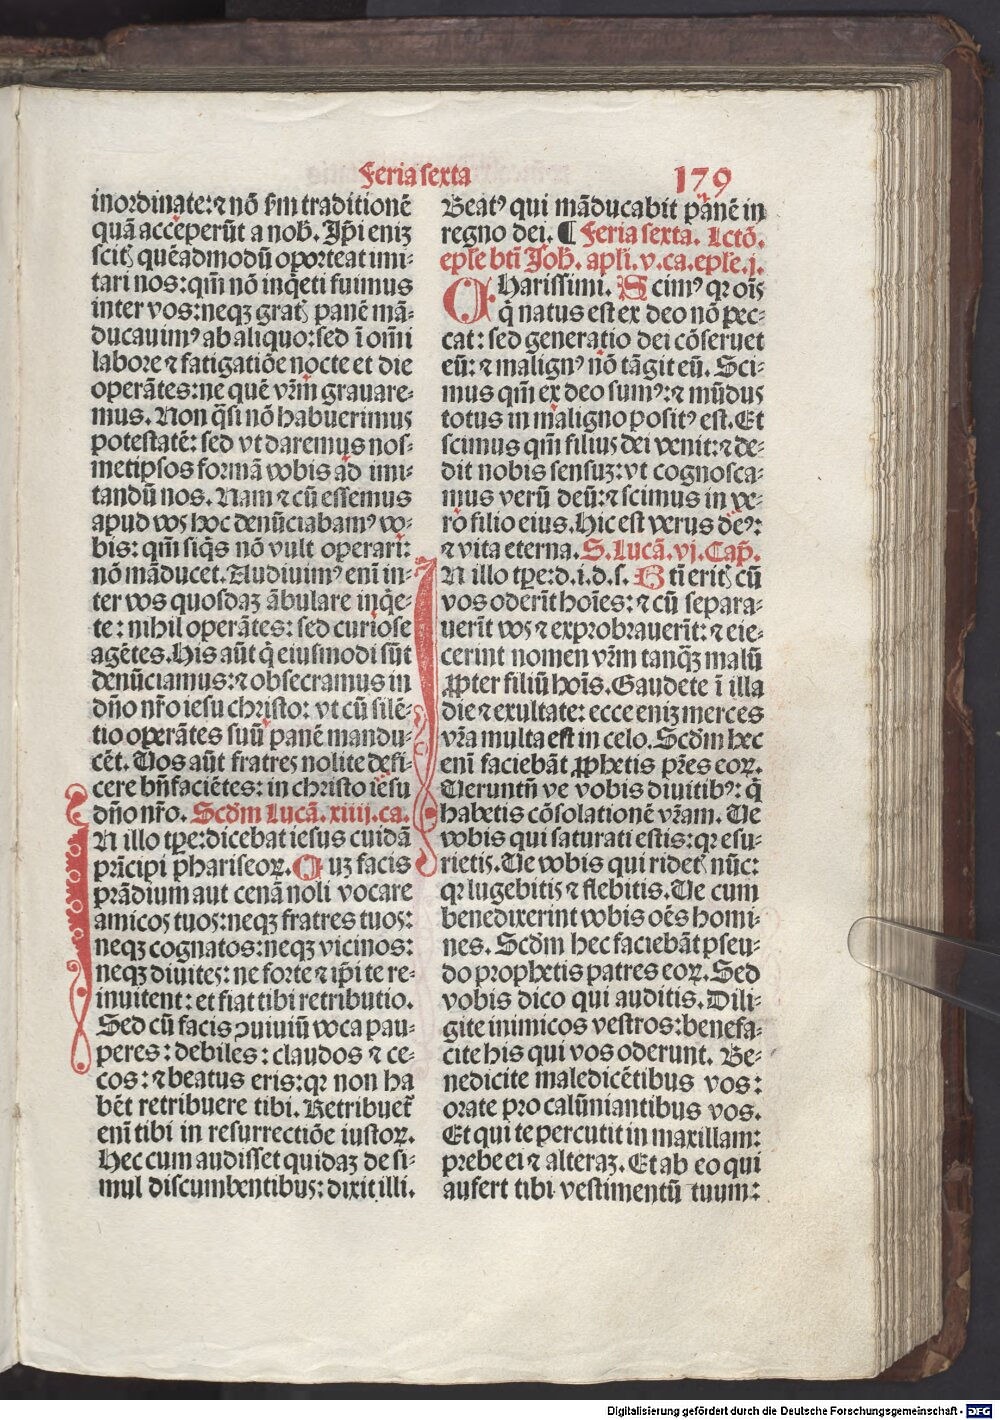 Feria sexta
179
inordinate:⁊ nō ẜm traditionē
quā acceperūt a nob̄. Ip̄i eniꝫ
scitꝭ quēadmodū oporteat imi-
tari nos:qm̄ nō inq̇eti fuimus
inter vos:neqꝫ gratꝭ panē mā-
ducauimꝰ ab aliquo:sed ī om̄i
labore ⁊ fatigatiōe nocte et die
operātes:ne quē vr̄m grauare-
mus. Non q̇si nō habuerimus
potestatē: sed vt daremus nos-
metipsos formā vobis ad imi-
tandū nos. Nam ⁊ cū essemus
apud vos hoc denūciabamꝰ vo-
bis: qm̄ siq̇s nō vult operari:
nō māducet. Audiuimꝰ enī in-
ter vos quosdaꝫ ābulare inq̇e-
te: nihil operātes: sed curiose
agētes. His aūt q̄ eiusmodi sūt
denūciamus:⁊ obsecramus in
dn̄o nr̄o iesu christo: vt cū silē-
tio operātes suū panē mandu-
cēt. Vos aūt fratres nolite defi-
cere bn̄faciētes: in christo iesu
dn̄o nr̄o. Scd̄m Lucā. xiiij. ca.
IN illo tꝑe:dicebat iesus cuidā
prīncipi phariseoꝝ. Cuꝫ facis
prādium aut cenā noli vocare
amicos tuos:neqꝫ fratres tuos:
neqꝫ cognatos:neqꝫ vicinos:
neqꝫ diuites: ne forte ⁊ ip̄i te re-
inuitent: et fiat tibi retributio.
Sed cū facis ꝯuiuiū voca pau-
peres: debiles: claudos ⁊ ce-
cos:⁊ beatus eris:qꝛ non ha
bēt retribuere tibi. Retribuet᷑
enī tibi in resurrectiōe iustoꝝ.
Hec cum audisset quidaꝫ de si-
mul discumbentibus: dixit illi.
Beatꝰ qui māducabit panē in
regno dei. ¶ Feria sexta. Lctō.
ep̄le bti̅ Joh̄. apl̄i. v. ca. ep̄le. j.
CHarissimi. Scimꝰ qꝛ oīs
q̇ natus est ex deo nō pec-
cat: sed generatio dei cōseruet
eū: ⁊ malignꝰ nō tāgit eū. Sci-
mus qm̄ ex deo sumꝰ:⁊ mūdus
totus in maligno positꝰ est. Et
scimus qm̄ filius dei venit:⁊ de-
dit nobis sensuꝫ: vt cognosca-
mus verū deū:⁊ scimus in ve-
ro filio eius. Hic est verus deꝰ:
⁊ vita eterna. S. Lucā. vj. Cap̄.
IN illo tꝑe: d. i. d. s. Bti̅ eritꝭ cū
vos oderīt hoīes: ⁊ cū separa-
uerīt vos ⁊ exprobrauerīt: ⁊ eie-
cerint nomen vr̄m tanqꝫ malū
ꝓpter filiū hoīs. Gaudete ī illa
die ⁊ exultate: ecce eniꝫ merces
vr̄a multa est in celo. Scd̄m hec
enī faciebāt ꝓphetis pr̄es eoꝝ.
Veruntn̄ ve vobis diuitibꝰ: q̇
habetis cōsolationē vr̄am. Ve
vobis qui saturati estis: qꝛ esu-
rietis. Ve vobis qui ridetꝭ nūc:
qꝛ lugebitis ⁊ flebitis. Ve cum
benedixerint vobis oēs homi-
nes. Scd̄m hec faciebāt pseu-
do prophetis patres eoꝝ. Sed
vobis dico qui auditis. Dili-
gite inimicos vestros: benefa-
cite his qui vos oderunt. Be-
nedicite maledicētibus vos:
orate pro calūniantibus vos.
Et qui te percutit in maxillam:
prebe ei ⁊ alteraꝫ. Et ab eo qui
aufert tibi vestimentū tuum:
Digitalisierung gefördert durch die Deutsche Forschungsgemeinschaft - DFG